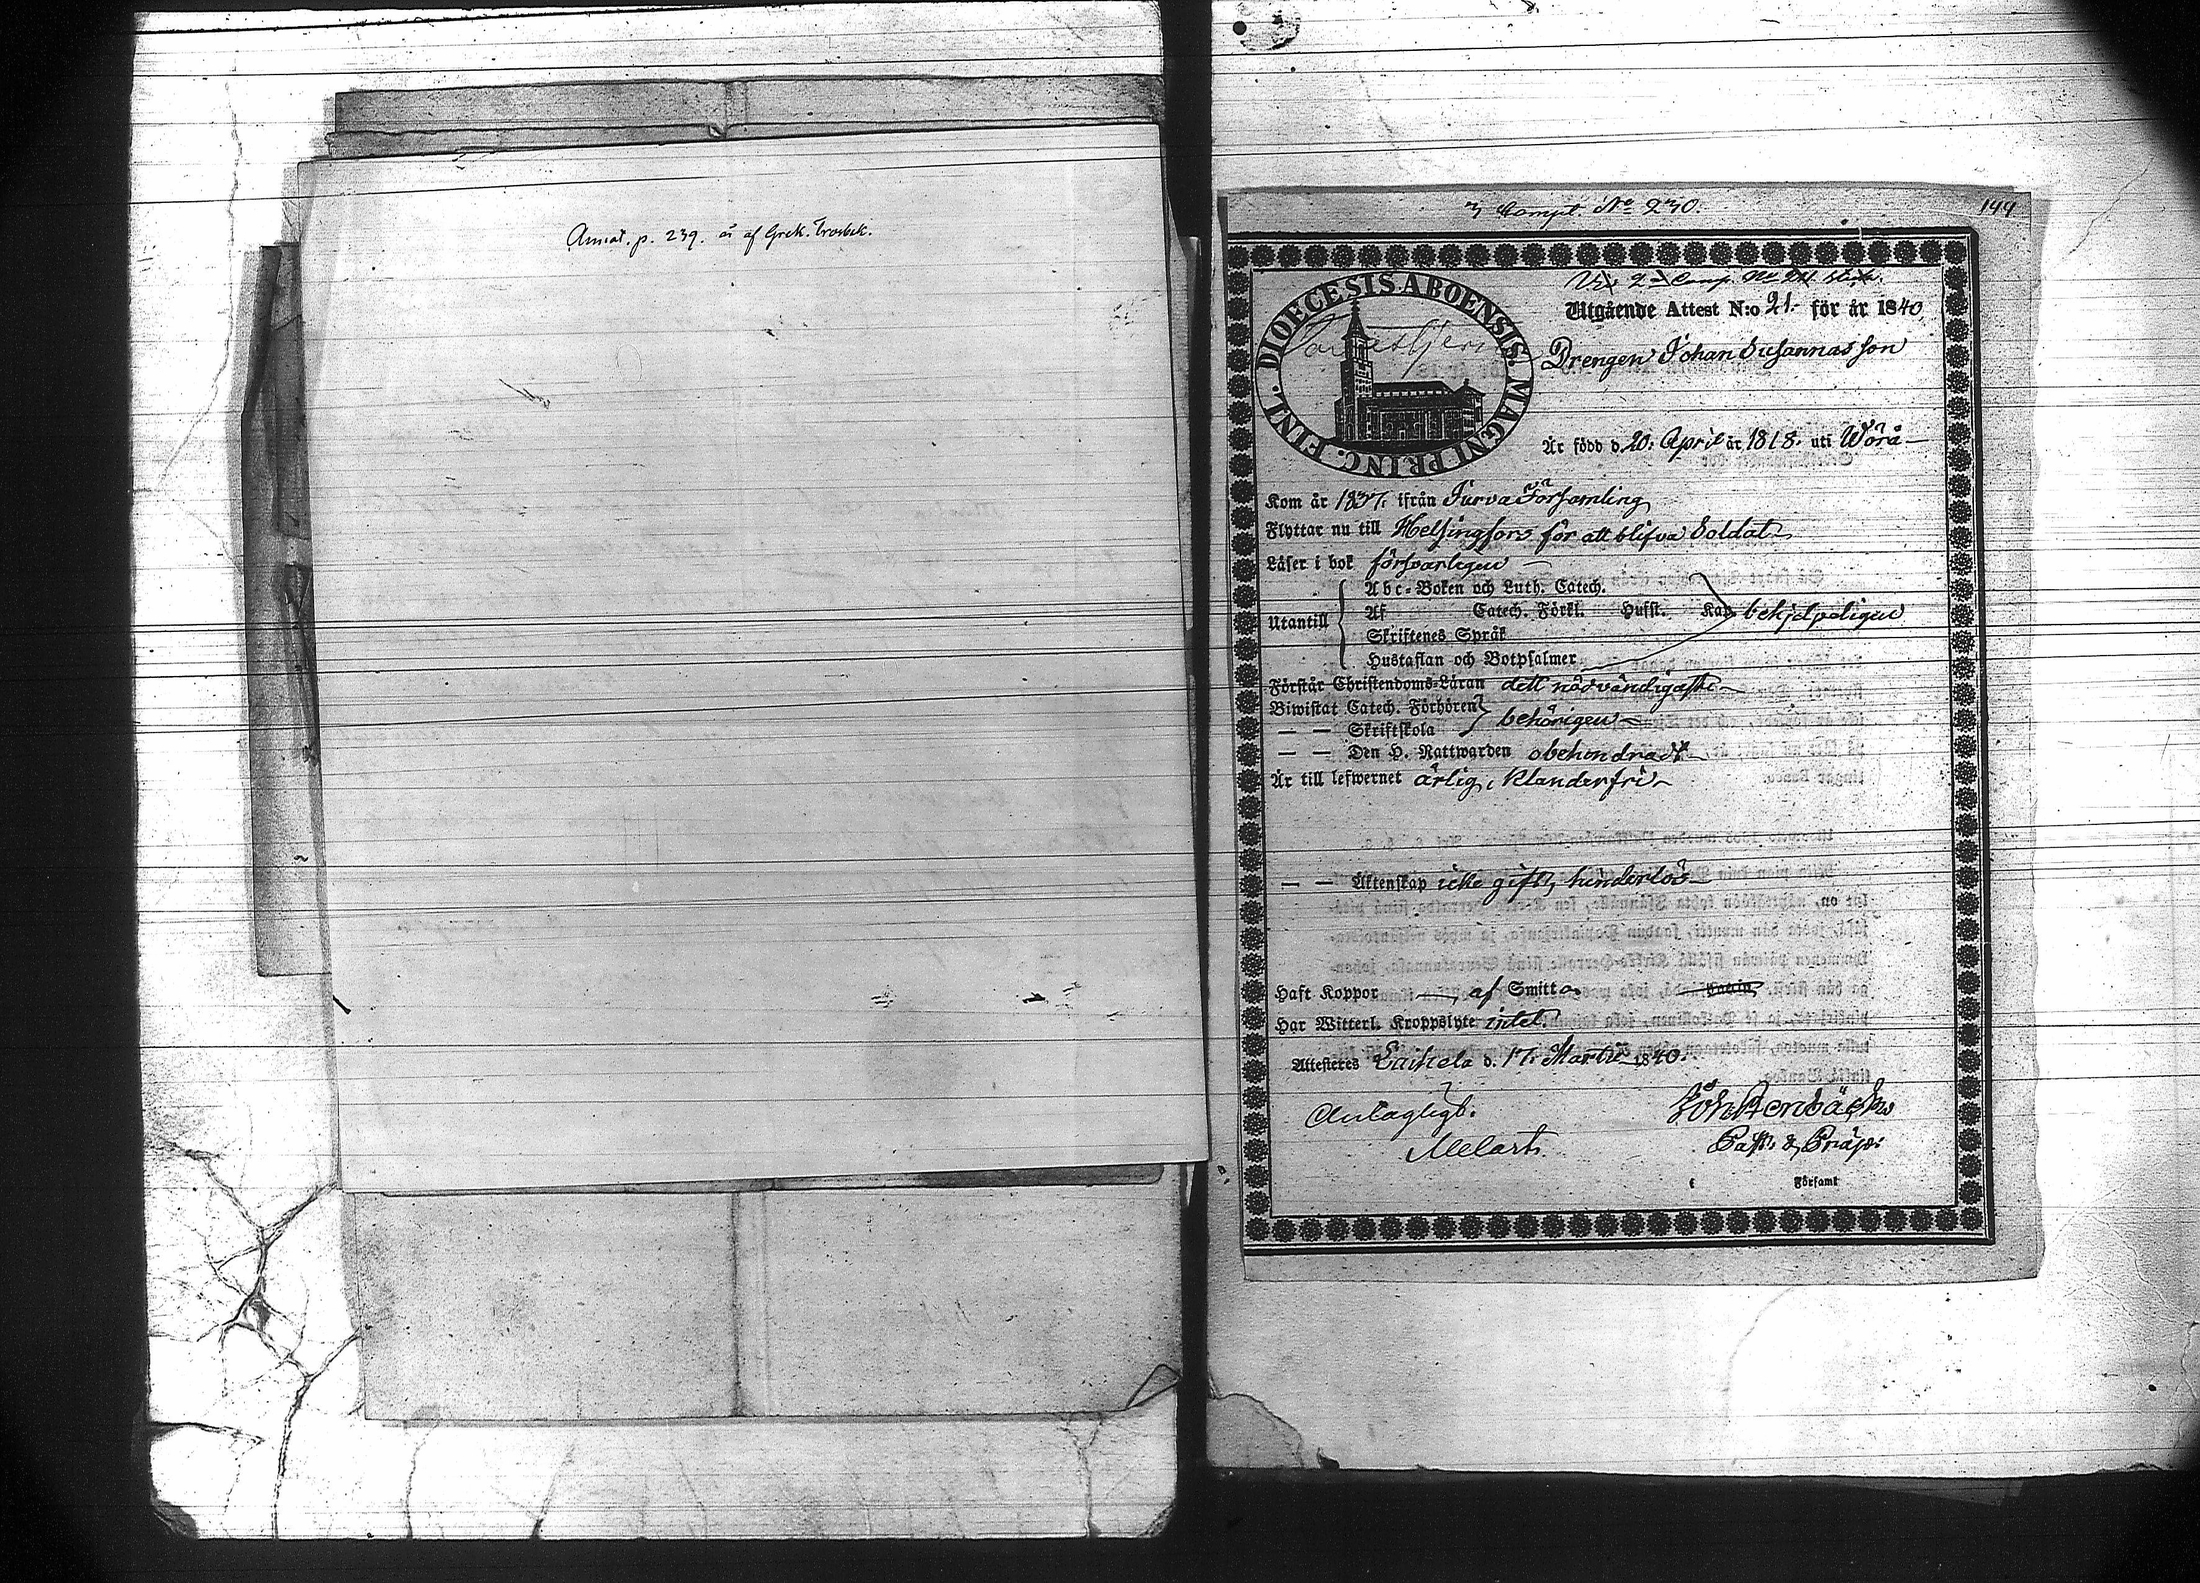 p. 239. är af Grek. Trosbek.
3 Comp. No 230.
144
DIOECESIS ABOENSIS. MAGNI PRINC. FINL.
Utgående Attest N:o 21. för år 1840
Drengen Johan Susannas son
Är född d. 20. April år 1818. uti Wörå
Kom år 1837. ifrån Jurva Församling
Flyttar nu till Helsingfors för att blifva Soldat
Läser i bok försvarligen
Utantill
Abc-Boken och Luth. Catech.
Af Catech. Förkl. Husst. Kap. behjelpeligen
Skriftenes Språk
Hustaflan och Botpsalmer
Förstår Christendoms-Läran dett nödvändigaste
Biwistat Catech. Förhören
— — Skriftskola behörigen
— — Den H. Nattwarden obehindradt
Är till lefwernet ärlig, klanderfri
— — Äktenskap icke gift, hinderlös
Haft Koppor — af Smitta
Har Witterl. Kroppslyte intet.
Attesteres Laihela d. 17. Martii 1840.
Antagligt.
Melart.
Past. & Præp.
Förfaml